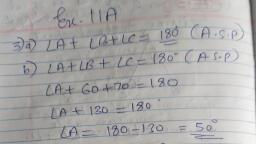 Ex. 11A
3) a) ∠A + ∠B + ∠C = 180° (A.S.P)
b) ∠A + ∠B + ∠C = 180° (A S.P)
∠A + 60 + 70 = 180
∠A + 130 = 180°
∠A = 180 - 130 = 50°